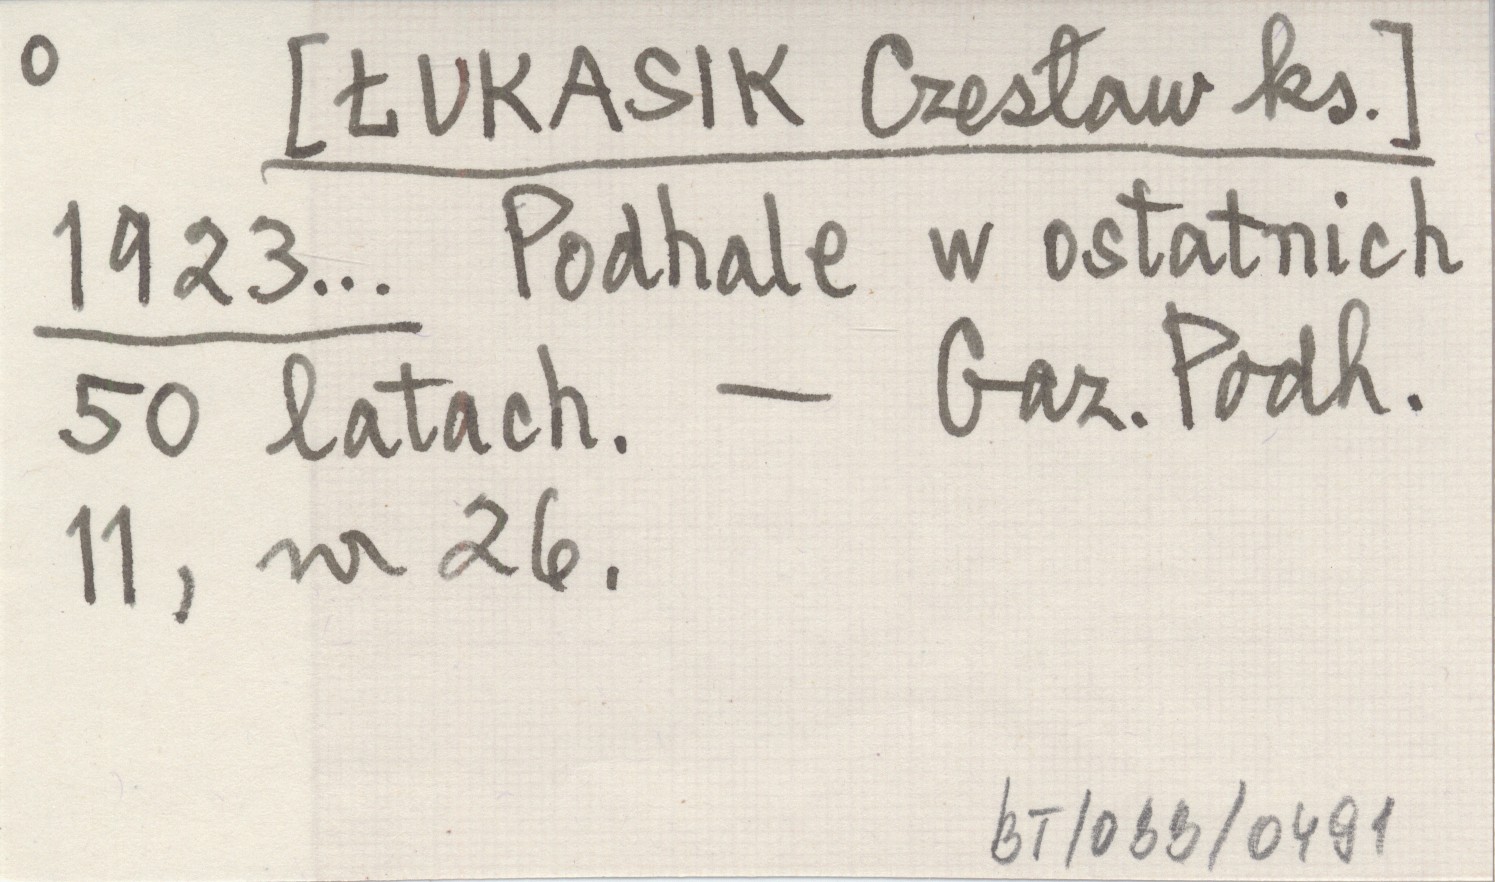 o [ŁUKASIK Czesław ks.]
1923... Podhale w ostatnich
50 latach. — Gaz. Podh.
11, nr 26.
BT/033/0491